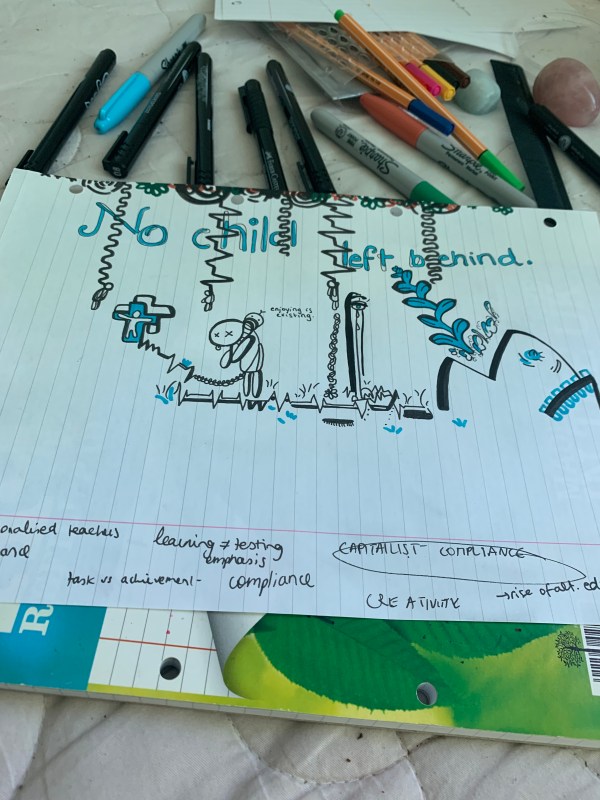 Sharpie
No child
left behind.
enjoying is
existing.
onalised teachers
learning ≠ testing
emphasis
CAPITALIST COMPLIANCE
task vs achievement-
compliance
CREATIVITY
→rise of alt. ed
R